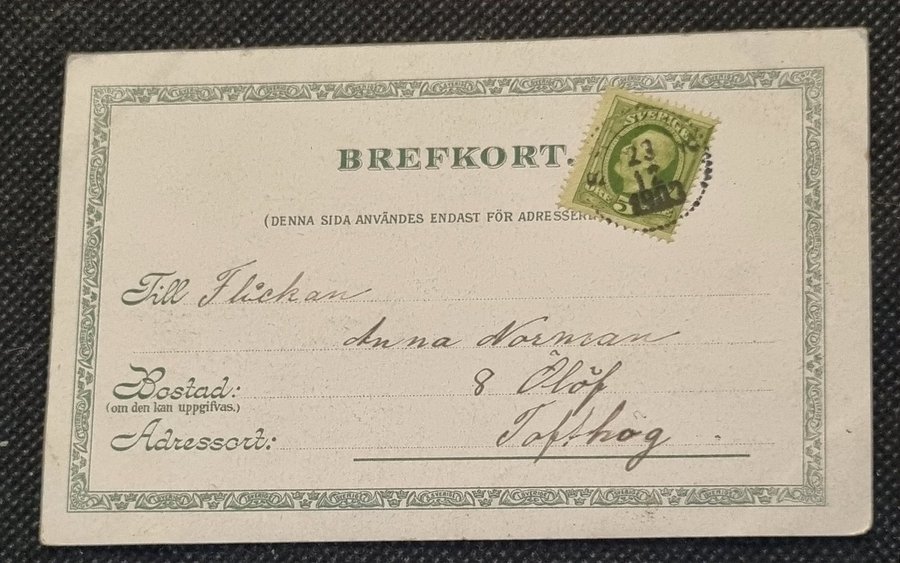 BREFKORT.
(DENNA SIDA ANVÄNDES ENDAST FÖR ADRESSE
SVERIGE
5
23
12
Till Flickan
Anna Norman
Bostad: 8 Ölöf
(om den kan uppgifvas.)
Adressort: Tofthög